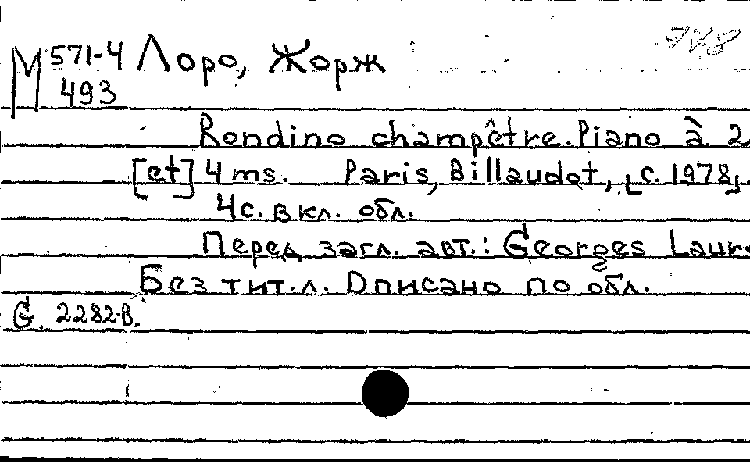 М 571-4 Лоро, Жорж
493
Rondino champêtre. Piano à 2
[et] 4 ms. Paris, Billaudot, [c. 1978].
4 с. вкл. обл.
Перед загл. авт.: Georges Laur
Без тит. л. Описано по обл.
G. 2282.B.